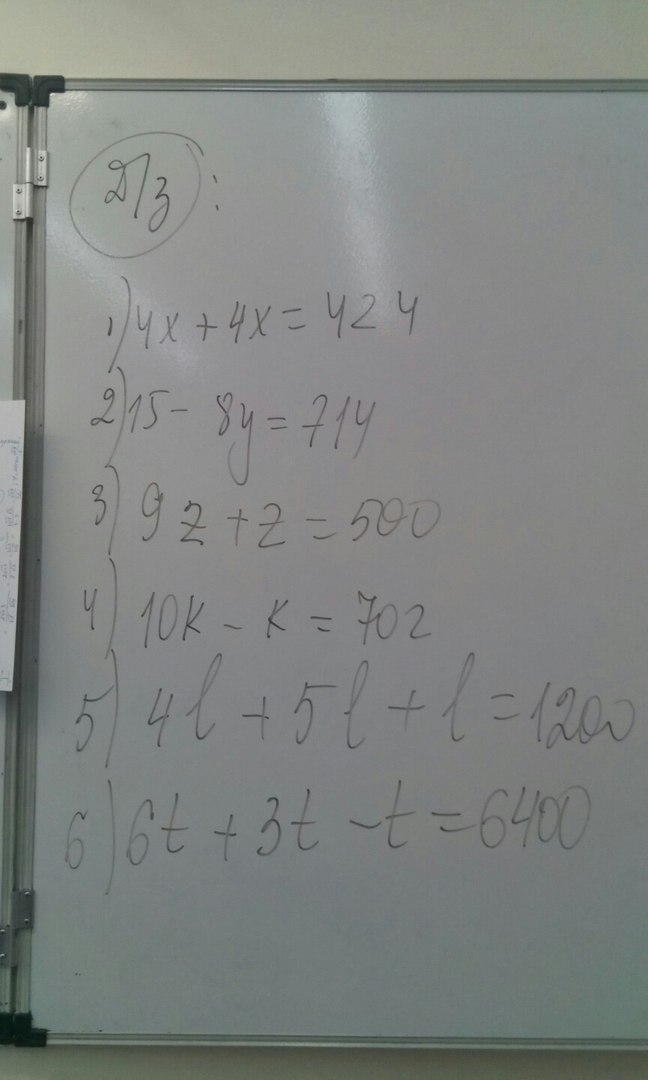 Д/з:
1) 4x + 4x = 424
2) 15 - 8y = 714
3) 9z + z = 500
4) 10k - k = 702
5) 4l + 5l + l = 1200
6) 6t + 3t - t = 6400